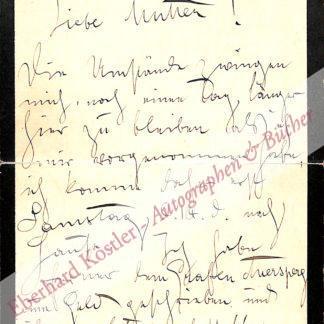 Liebe Mutter!
Die Umstände zwingen
mich, noch einen Tag länger
hier zu bleiben als
mir vorgenommen habe,
ich komme erst
Samstag d. nach
Hause. Ich habe
dem Grafen Auersperg
Geld geschrieben und
Eberhard Köstler - Autographen & Bücher